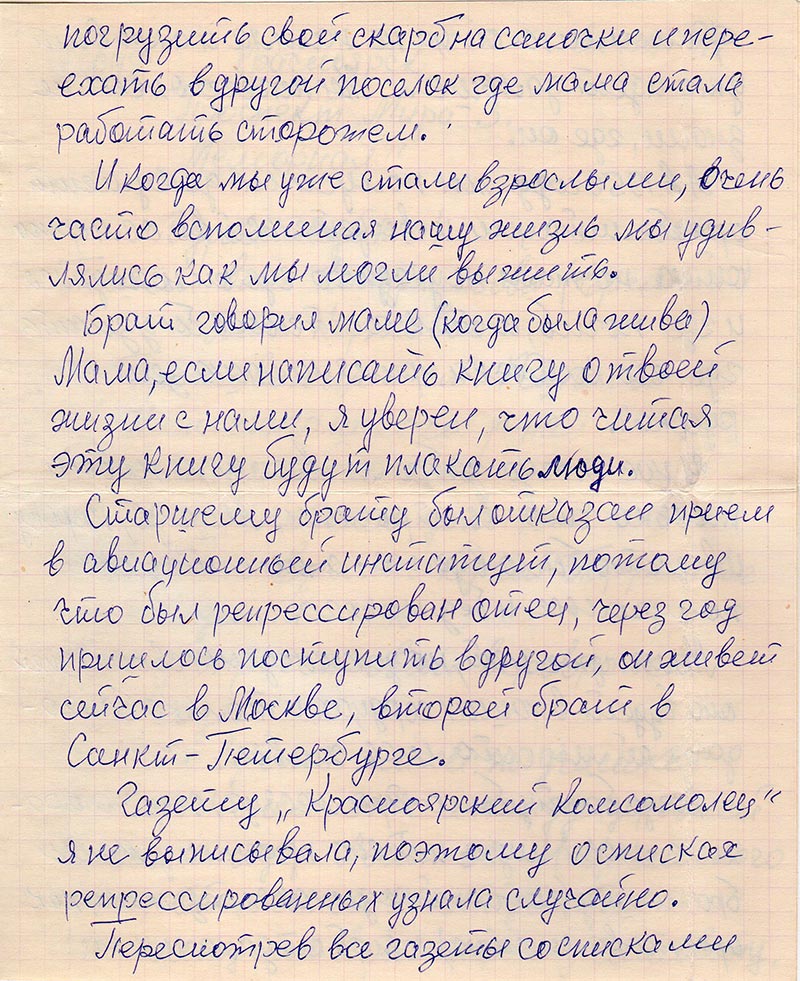 погрузить свой скарб на саночки и пере-
ехать в другой поселок где мама стала
работать сторожем.
И когда мы уже стали взрослыми, очень
часто вспоминая нашу жизнь мы удив-
лялись как мы могли выжить.
Брат говорил маме (когда была жива)
Мама, если написать книгу о твоей
жизни с нами, я уверен, что читая
эту книгу будут плакать люди.
Старшему брату был отказан прием
в авиационный институт, потому
что был репрессирован отец, через год
пришлось поступить в другой, он живет
сейчас в Москве, второй брат в
Санкт-Петербурге.
Газету „Красноярский Комсомолец“
я не выписывала, поэтому о списках
репрессированных узнала случайно.
Пересмотрев все газеты со списками